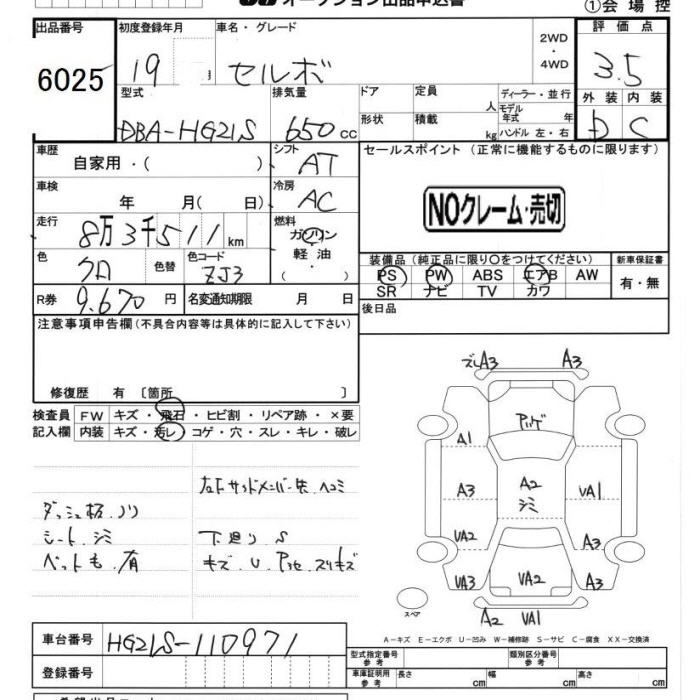 オークション出品申込書
①会場控
出品番号
6025
初度登録年月 車名・グレード
19年 月 セルボ
2WD
・
4WD
評価点
3.5
外装 内装
D C
型式 排気量 ドア 定員 ディーラー・並行
DBA-HG21S 650cc 人 モデル年式 年
形状 積載 kg ハンドル 左・右
車歴 シフト セールスポイント(正常に機能するものに限ります)
自家用・( ) AT
車検 冷房
年 月( 日) AC
NOクレーム・売切
走行 燃料
8万3千511km ガソリン
軽油
・( )
色 色替 色コード
クロ ZJ3
装備品(純正品に限り○をつけてください) 新車保証書
PS PW ABS エアB AW 有・無
SR ナビ TV カワ
R券 9,670円 名変通知期限 月 日
後日品
注意事項申告欄(不具合内容等は具体的に記入して下さい)
修復歴 有〔箇所 〕
検査員 FW キズ・飛石・ヒビ割・リペア跡・×要
記入欄 内装 キズ・汚レ・コゲ・穴・スレ・キレ・破レ
ダッシュ ノリ
シート シミ
ペット毛 有
下廻り S
A3 A3
A1
A2
シミ
A3
VA1
VA2
A3
VA3
VA2
A3
A2 VA1
スペア
A-キズ E-エクボ U-凹み W-補修跡 S-サビ C-腐食 XX-交換済
車台番号 HG21S-110971
登録番号
型式指定番号 参考 類別区分番号 参考
車庫証明用 参考 長さ cm 幅 cm 高さ cm